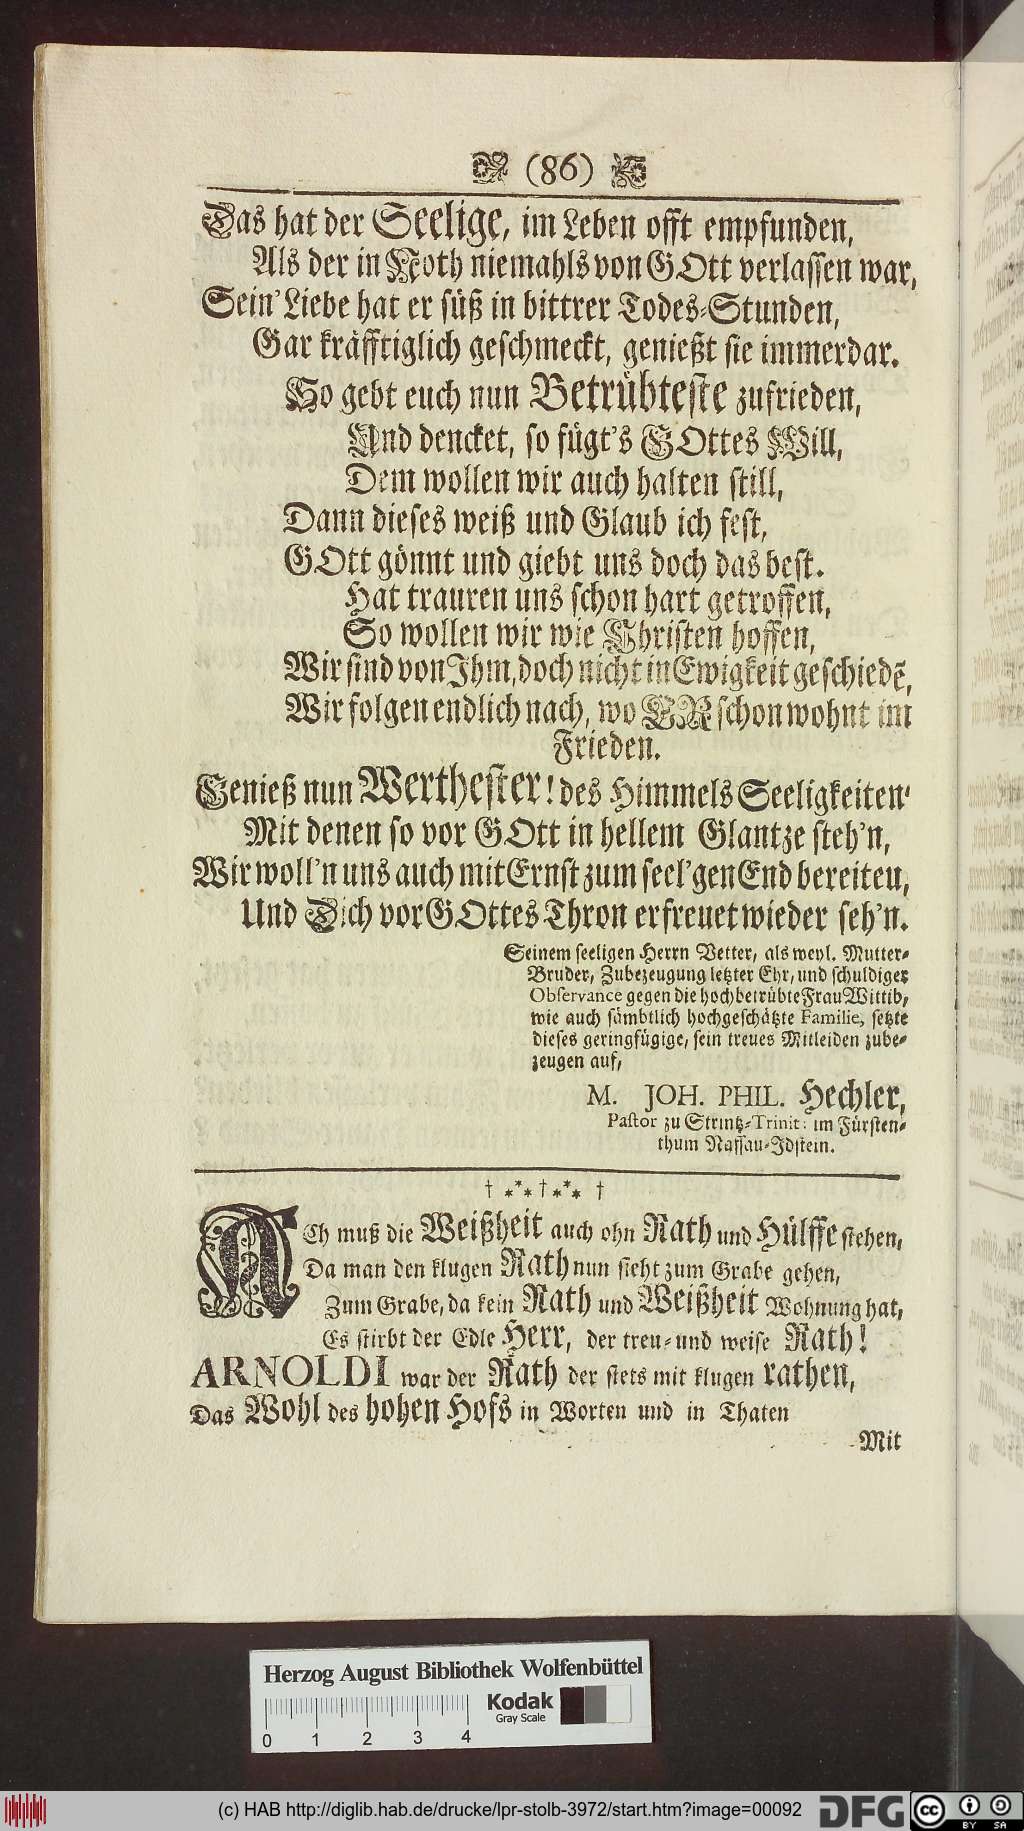 (86)
Das hat der Seelige, im Leben offt empfunden,
Als der in Noth niemahls von GOtt verlassen war,
Sein' Liebe hat er süß in bittrer Todes-Stunden,
Gar kräfftiglich geschmeckt, genießt sie immerdar.
So gebt euch nun Betrübteste zufrieden,
Und dencket, so fügt's GOttes Will,
Dem wollen wir auch halten still,
Dann dieses weiß und Glaub ich fest,
GOtt gönnt und giebt uns doch das best.
Hat trauren uns schon hart getroffen,
So wollen wir wie Christen hoffen,
Wir sind von Ihm, doch nicht in Ewigkeit geschiedē,
Wir folgen endlich nach, wo ER schon wohnt im
Frieden.
Genieß nun Werthester! des Himmels Seeligkeiten'
Mit denen so vor GOtt in hellem Glantze steh'n,
Wir woll'n uns auch mit Ernst zum seel'gen End bereiteu,
Und Dich vor GOttes Thron erfreuet wieder seh'n.
Seinem seeligen Herrn Vetter, als weyl. Mutter-
Bruder, Zubezeugung letzter Ehr, und schuldiger
Observance gegen die hochbetrübte Frau Wittib,
wie auch sämbtlich hochgeschätzte Familie, setzte
dieses geringfügige, sein treues Mitleiden zube-
zeugen auf,
M. JOH. PHIL. Hechler,
Pastor zu Strintz-Trinit: im Fürsten-
thum Nassau-Idstein.
† *** † *** †
ACh muß die Weißheit auch ohn Rath und Hülffe stehen,
Da man den klugen Rath nun sieht zum Grabe gehen,
Zum Grabe, da kein Rath und Weißheit Wohnung hat,
Es stirbt der Edle Herr, der treu- und weise Rath!
ARNOLDI war der Rath der stets mit klugen rathen,
Das Wohl des hohen Hofs in Worten und in Thaten
Mit
Herzog August Bibliothek Wolfenbüttel
Kodak
Gray Scale
0 1 2 3 4
(c) HAB http://diglib.hab.de/drucke/lpr-stolb-3972/start.htm?image=00092
DFG
cc BY SA